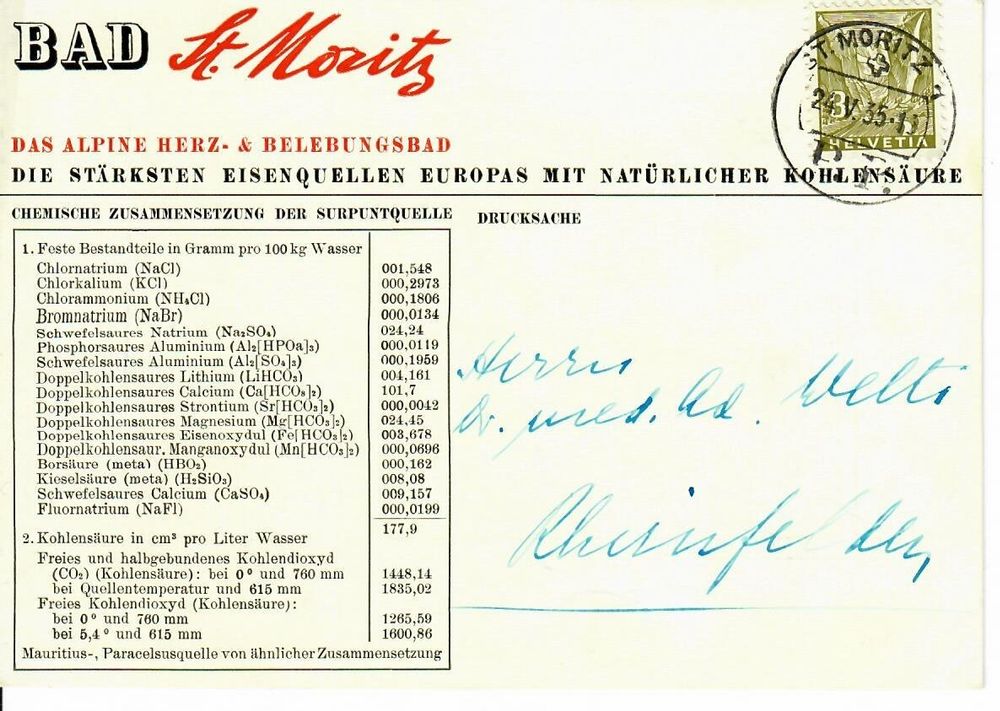 BAD St. Moritz
ST. MORITZ 1
24.V.35
3
HELVETIA
DAS ALPINE HERZ- & BELEBUNGSBAD
DIE STÄRKSTEN EISENQUELLEN EUROPAS MIT NATÜRLICHER KOHLENSÄURE
CHEMISCHE ZUSAMMENSETZUNG DER SURPUNTQUELLE
DRUCKSACHE
1. Feste Bestandteile in Gramm pro 100 kg Wasser
Chlornatrium (NaCl) 001,548
Chlorkalium (KCl) 000,2973
Chlorammonium (NH₄Cl) 000,1806
Bromnatrium (NaBr) 000,0134
Schwefelsaures Natrium (Na₂SO₄) 024,24
Phosphorsaures Aluminium (Al₂[HPOa]₃) 000,0119
Schwefelsaures Aluminium (Al₂[SO₄]₃) 000,1959
Doppelkohlensaures Lithium (LiHCO₃) 04,161
Doppelkohlensaures Calcium (Ca[HCO₃]₂) 101,7
Doppelkohlensaures Strontium (Sr[HCO₃]₂) 000,0042
Doppelkohlensaures Magnesium (Mg[HCO₃]₂) 024,45
Doppelkohlensaures Eisenoxydul (Fe[HCO₃]₂) 003,678
Doppelkohlensaur. Manganoxydul (Mn[HCO₃]₂) 000,0696
Borsäure (meta) (HBO₂) 000,162
Kieselsäure (meta) (H₂SiO₃) 008,08
Schwefelsaures Calcium (CaSO₄) 009,157
Fluornatrium (NaFl) 000,0199
177,9
2. Kohlensäure in cm³ pro Liter Wasser
Freies und halbgebundenes Kohlendioxyd
(CO₂) (Kohlensäure): bei 0° und 760 mm 1448,14
bei Quellentemperatur und 615 mm 1835,02
Freies Kohlendioxyd (Kohlensäure):
bei 0° und 760 mm 1265,59
bei 5,4° und 615 mm 1600,86
Mauritius-, Paracelsusquelle von ähnlicher Zusammensetzung
Herrn
Dr. med. Ad. Welti
Rheinfelden